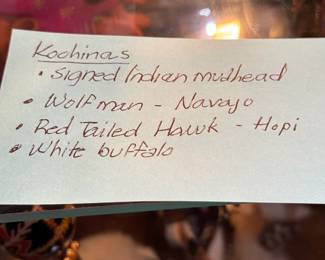 Kochinas
• Signed Indian mudhead
• Wolfman - Navajo
• Red Tailed Hawk - Hopi
• White buffalo